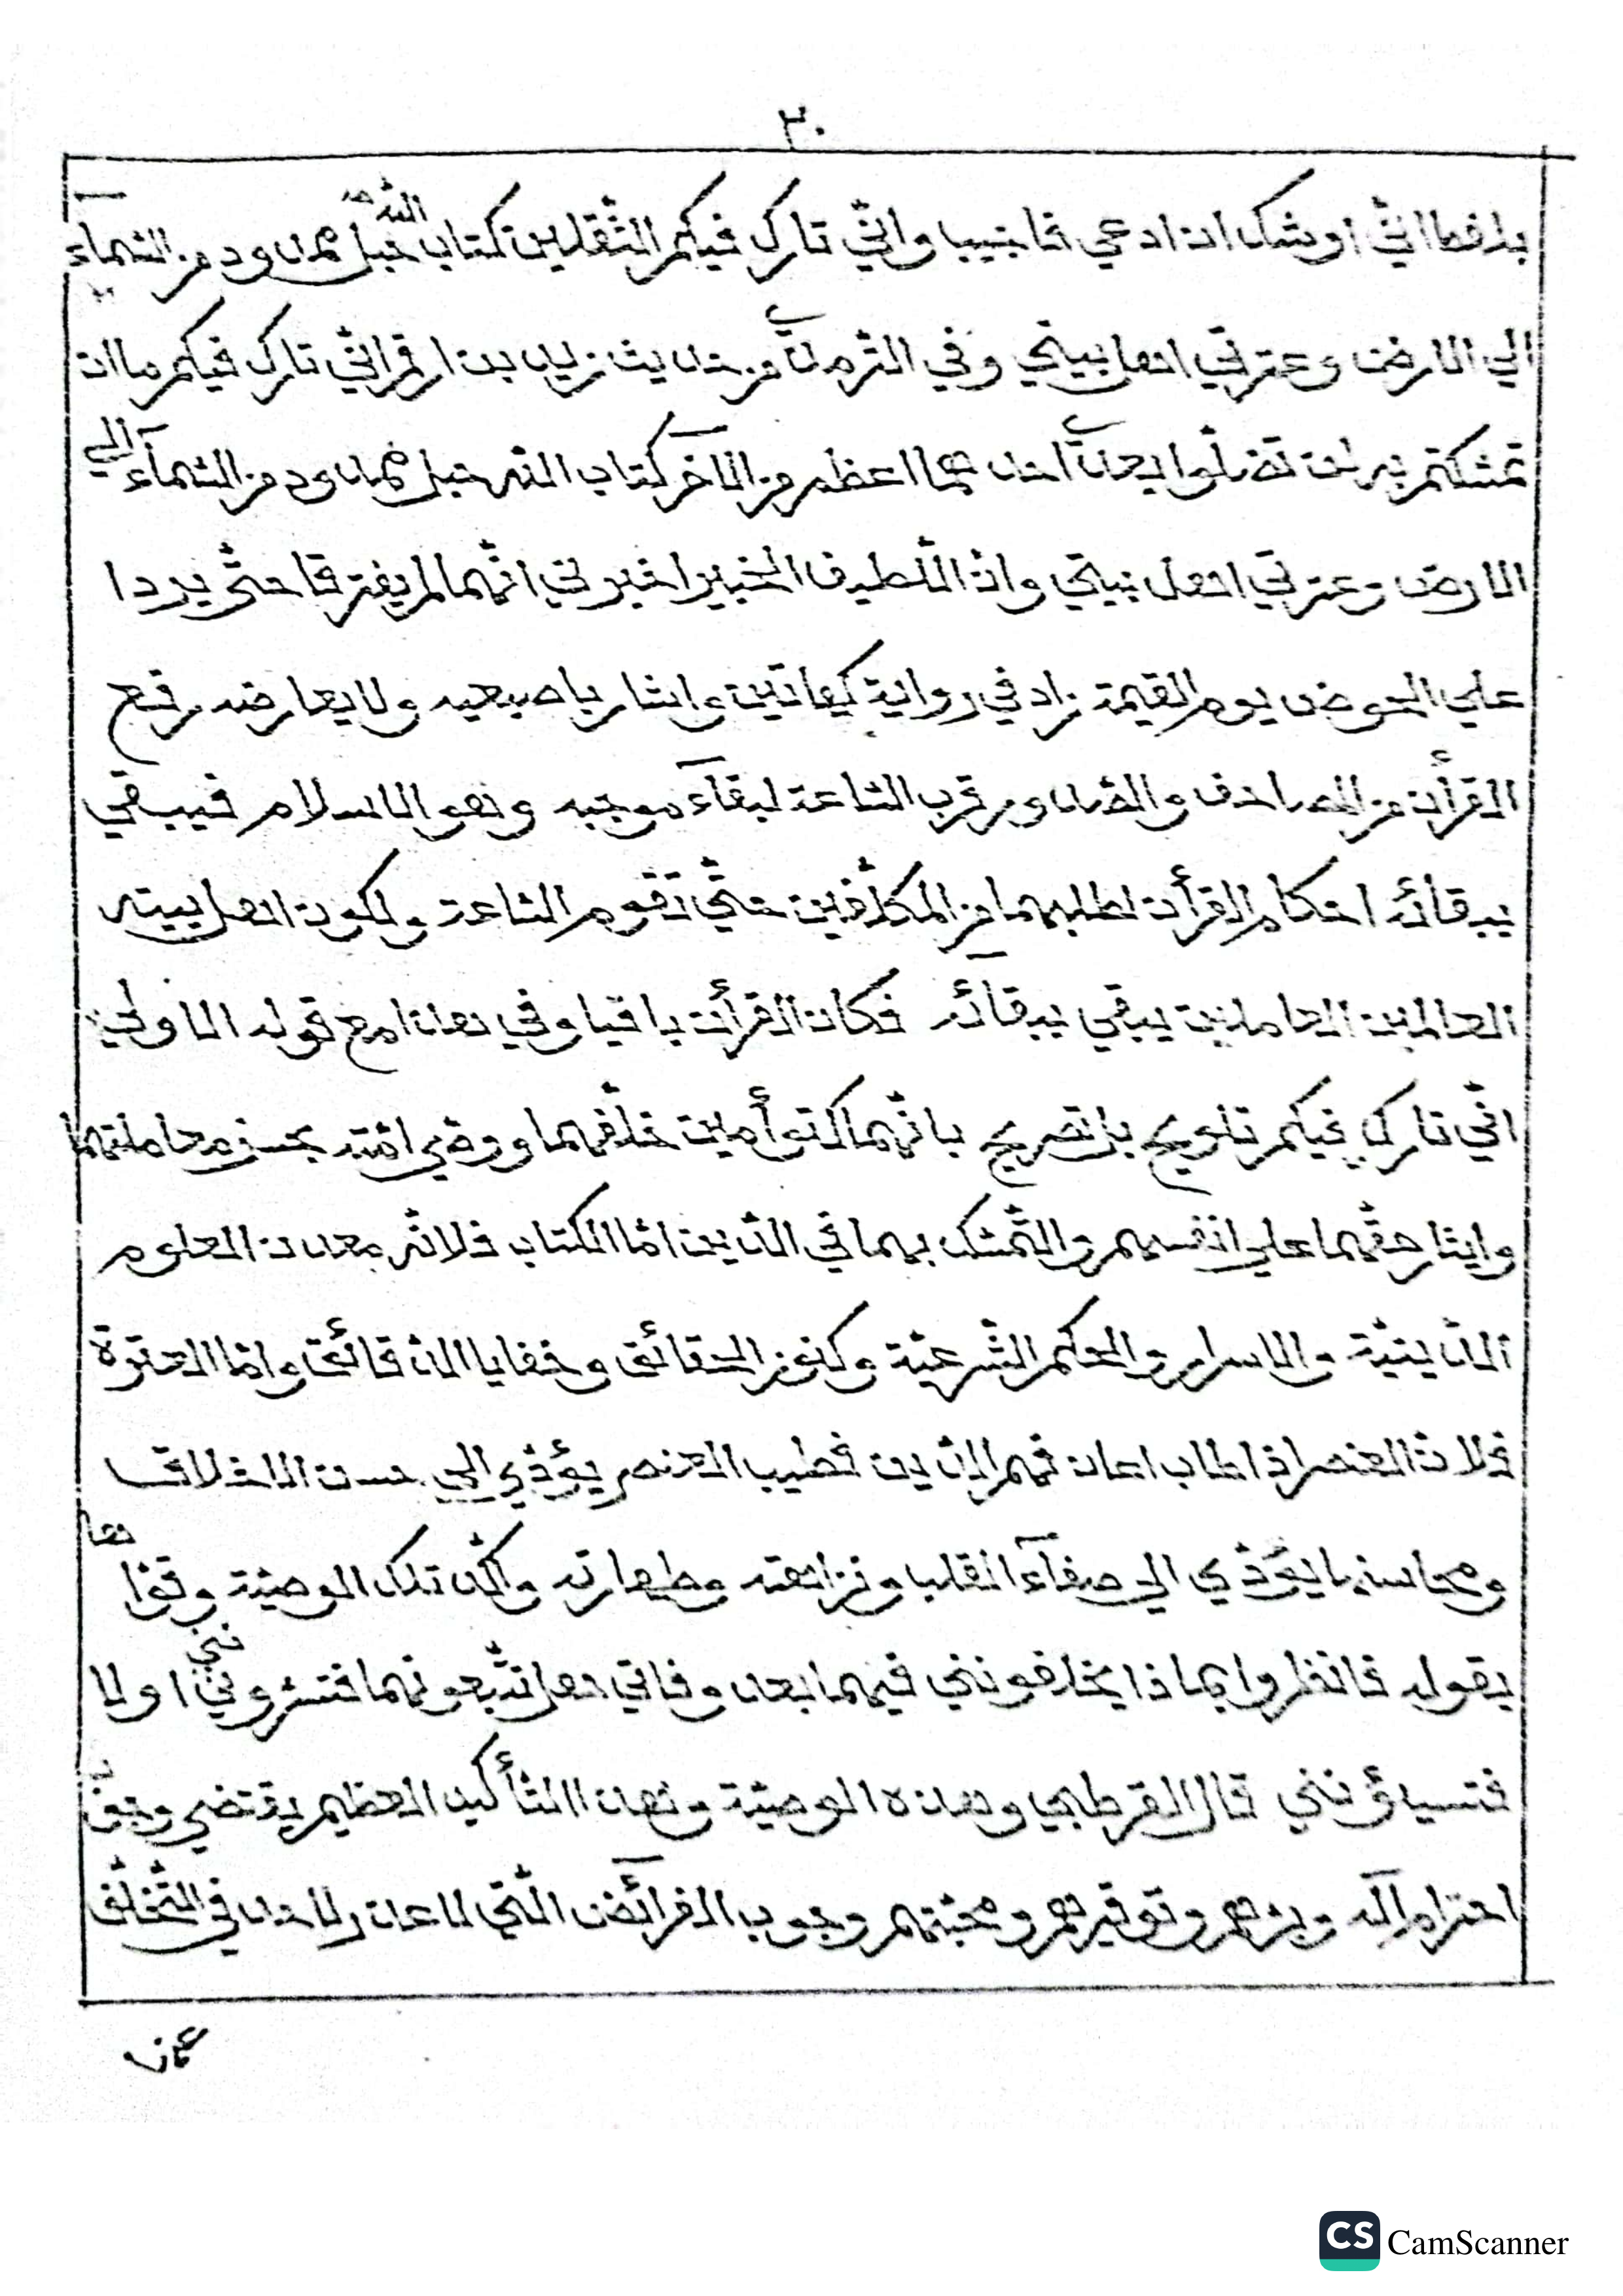 ٣٠
بلفظ انّي اوشك ان ادعي فاجيب واني تارك فيكم الثّقلين كتاب اللّه حبل ممدود من السّمآء
الي الارض وعترتي اهل بيتي وفي التّرمذي من حديث زيد بن ارقم انّي تارك فيكم ما ان
تمسّكتم به لن تضلّوا بعدي احدهما اعظم من الآخر كتاب اللّه حبل ممدود من السّمآء الي
الارض وعترتي اهل بيتي وان اللّطيف الخبير اخبرني انّهما لم يفترقا حتّي يردا
علي الحوض يوم القيمة زاد في رواية كهاتين واشار باصبعيه ولا يعارضه رفع
القرأن من المصاحف والصّدور قرب السّاعة لبقآء موجبه وهو الاسلام فيبقي
ببقائه احكام القرأن لطلبهما من المكلّفين حتّي تقوم السّاعة ولكون اهل بيته
العالمين العاملين يبقي ببقآئه فكان القرأن باقيا وفي هذا مع قوله اولا
انّي تارك فيكم تلويح بل تصريح بانّهما كتوأمين خلّفهما ووصّي امّته بحسن معاملتهما
وايثار حقّهما علي انفسهم والتّمسّك بهما في الدّين امّا الكتاب فلانّه معدن العلوم
الدّينيّة والاسرار والحكم الشّرعيّة وكنوز الحقائق وخفايا الدّقائق وامّا العترة
فلانّ العنصر اذا طاب اعان فهم الدّين فطيب العنصر يؤدّي الي حسن الاخلاق
ومحاسنها يؤدّي الي صفآء القلب ونزاهته وطهارته واكّد تلك الوصيّة وقوّاها
بقوله فانظروا بماذا يخلفونني فيهما بعد وفاتي هل تتّبعونهما فتسرّونني اولا
فتسيؤنني قال القرطبي وهذه الوصيّة وهذا التّأكيد العظيم يقتضي وجوب
احترام آله وبرّهم وتوقيرهم ومحبّتهم وجوب الفرآئض الّتي لا عذر لاحد في التّخلّف
عنها
CS CamScanner